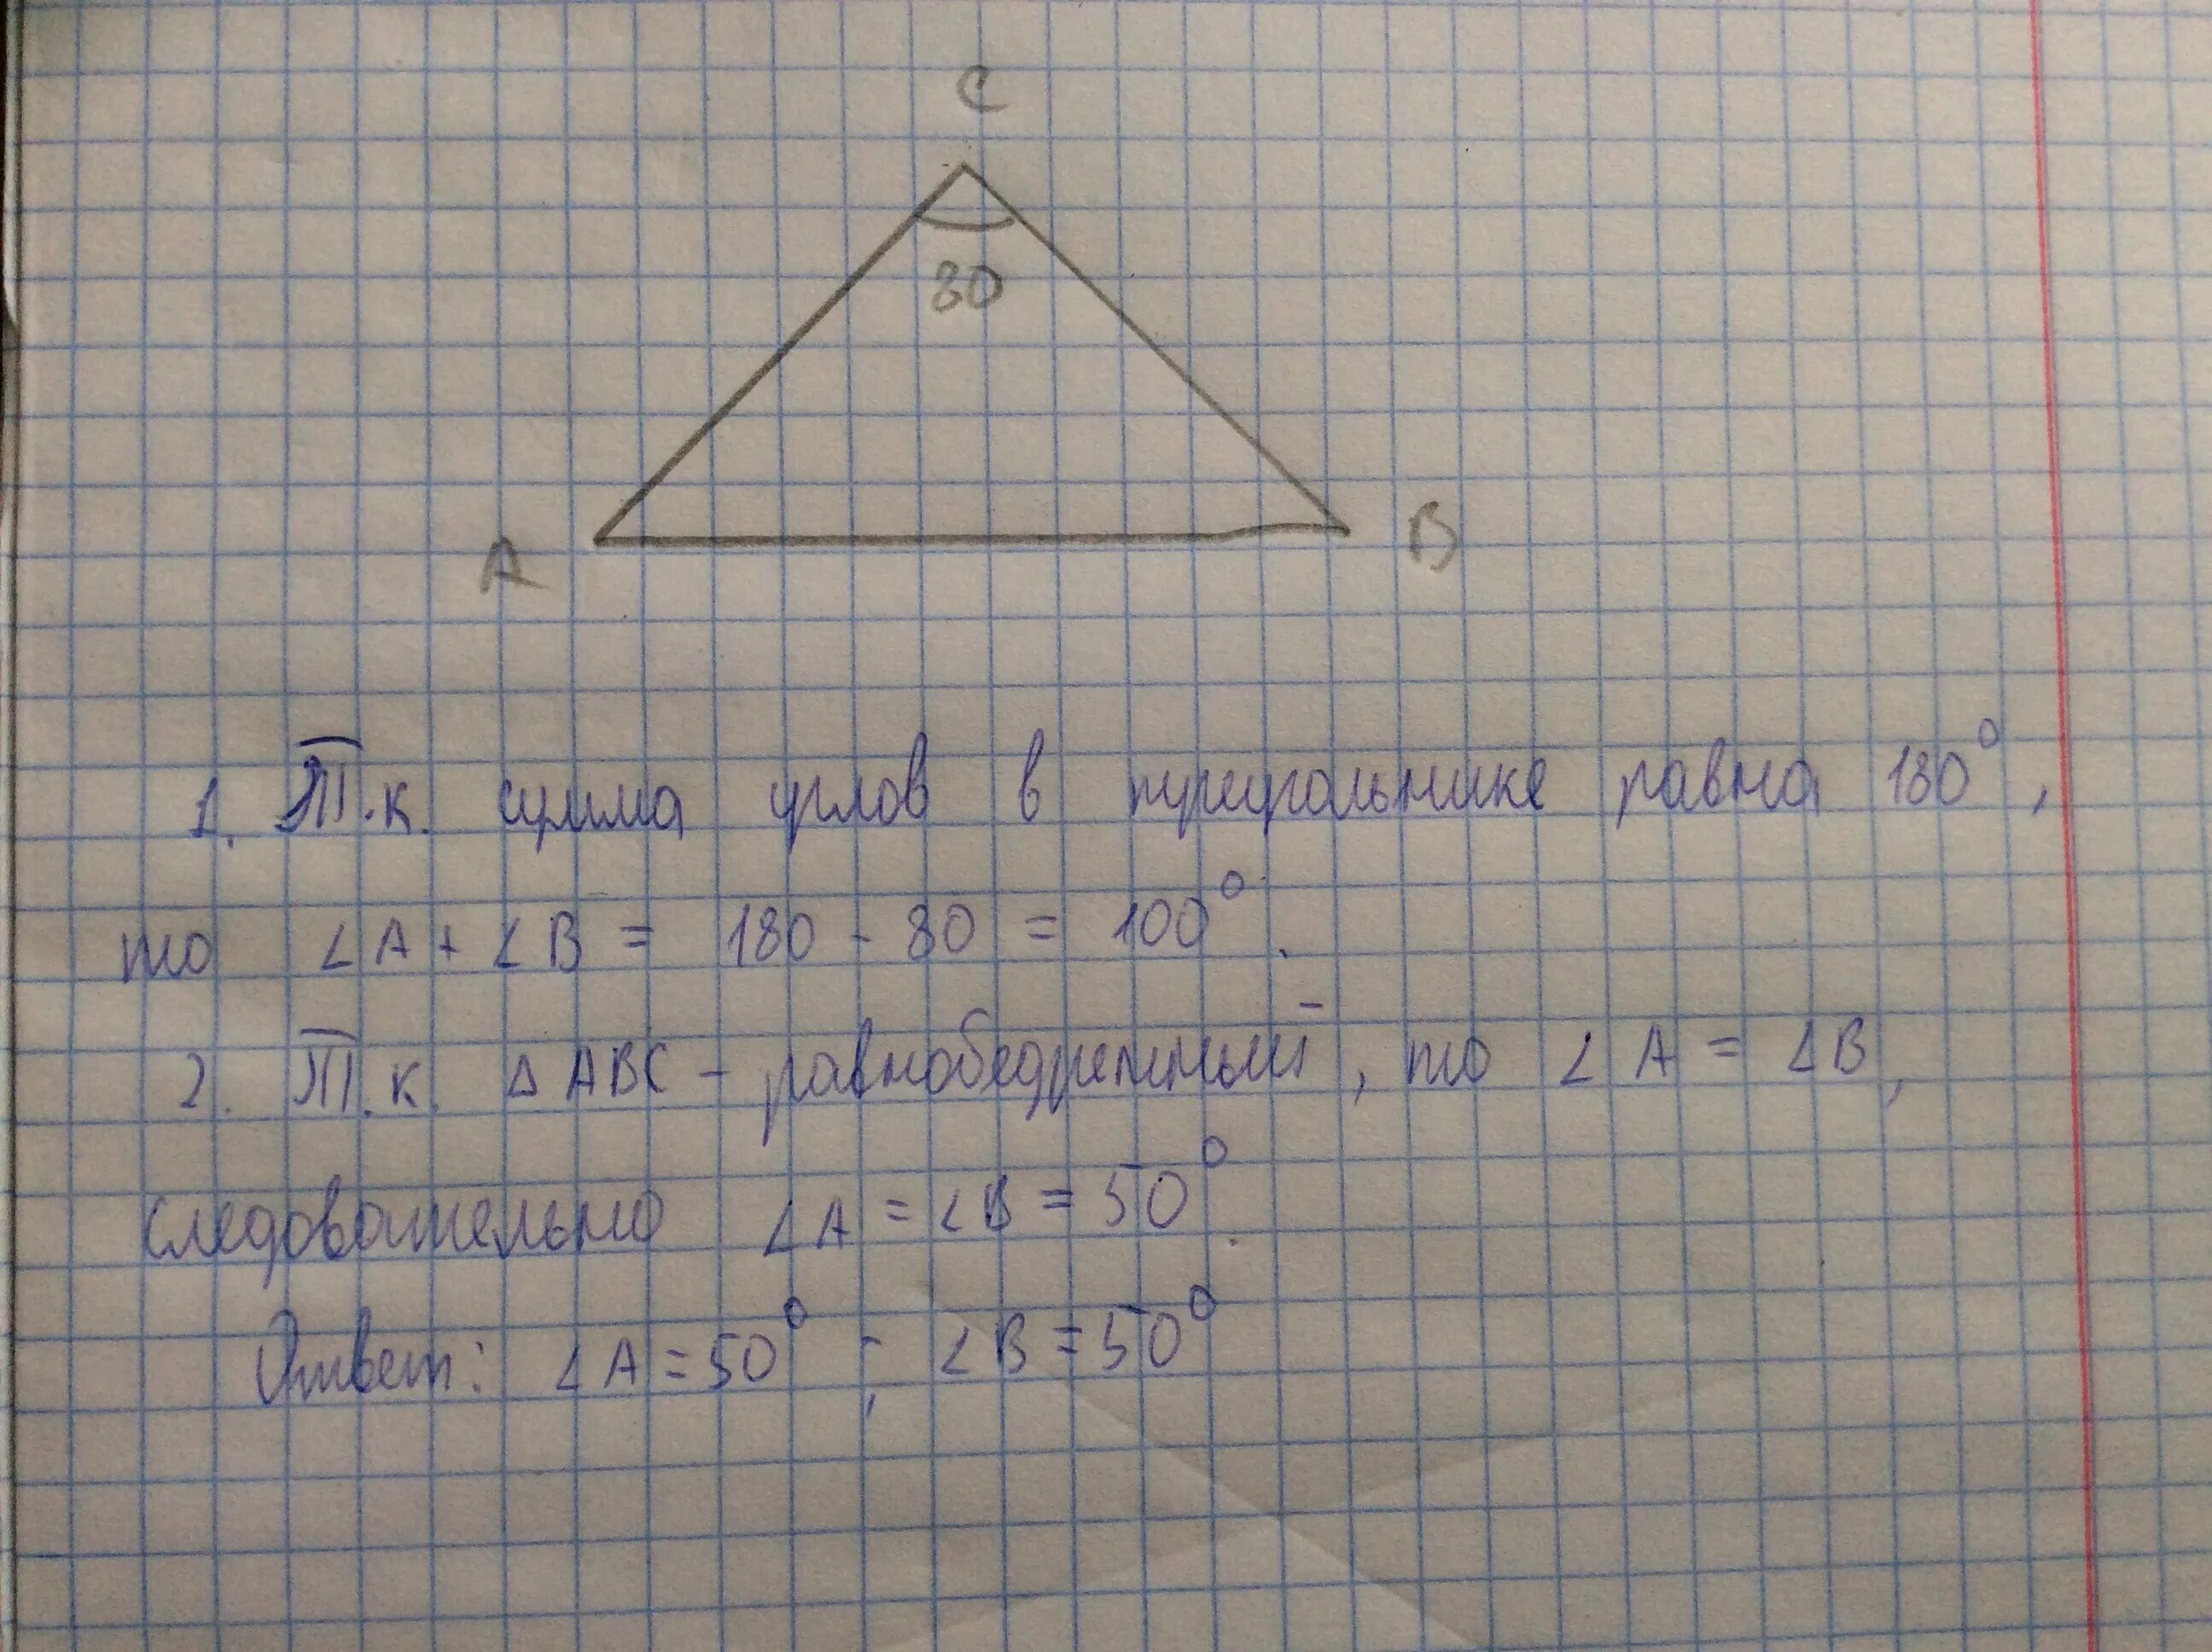 C
80
A
B
1. Т.к. сумма углов в треугольнике равна 180°,
то ∠A + ∠B = 180 - 80 = 100°.
2. Т.к. △ABC - равнобедренный, то ∠A = ∠B,
следовательно ∠A = ∠B = 50°.
Ответ: ∠A = 50° ; ∠B = 50°